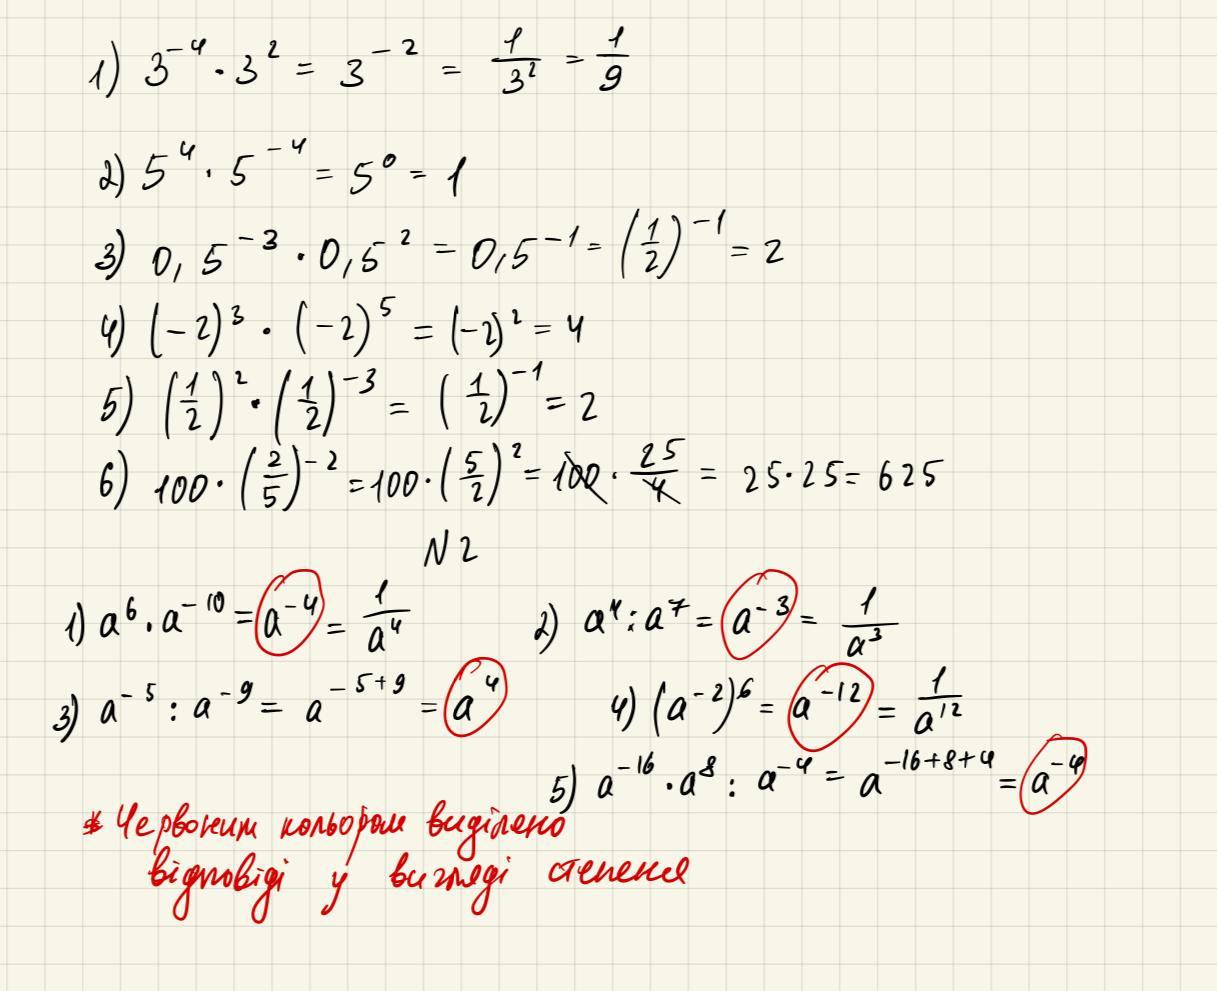 1) 3⁻⁴ · 3² = 3⁻² = 1/3² = 1/9
2) 5⁴ · 5⁻⁴ = 5⁰ = 1
3) 0,5⁻³ · 0,5² = 0,5⁻¹ = (1/2)⁻¹ = 2
4) (-2)³ · (-2)⁵ = (-2)² = 4
5) (1/2)² · (1/2)⁻³ = (1/2)⁻¹ = 2
6) 100 · (2/5)⁻² = 100 · (5/2)² = 100 · 25/4 = 25 · 25 = 625
N2
1) a⁶ · a⁻¹⁰ = a⁻⁴ = 1/a⁴ 2) a⁴ : a⁷ = a⁻³ = 1/a³
3) a⁻⁵ : a⁻⁹ = a⁻⁵⁺⁹ = a⁴ 4) (a⁻²)⁶ = a⁻¹² = 1/a¹²
5) a⁻¹⁶ · a⁸ : a⁻⁴ = a⁻¹⁶⁺⁸⁺⁴ = a⁻⁴
* Червоним кольором виділено
відповіді у вигляді степеня